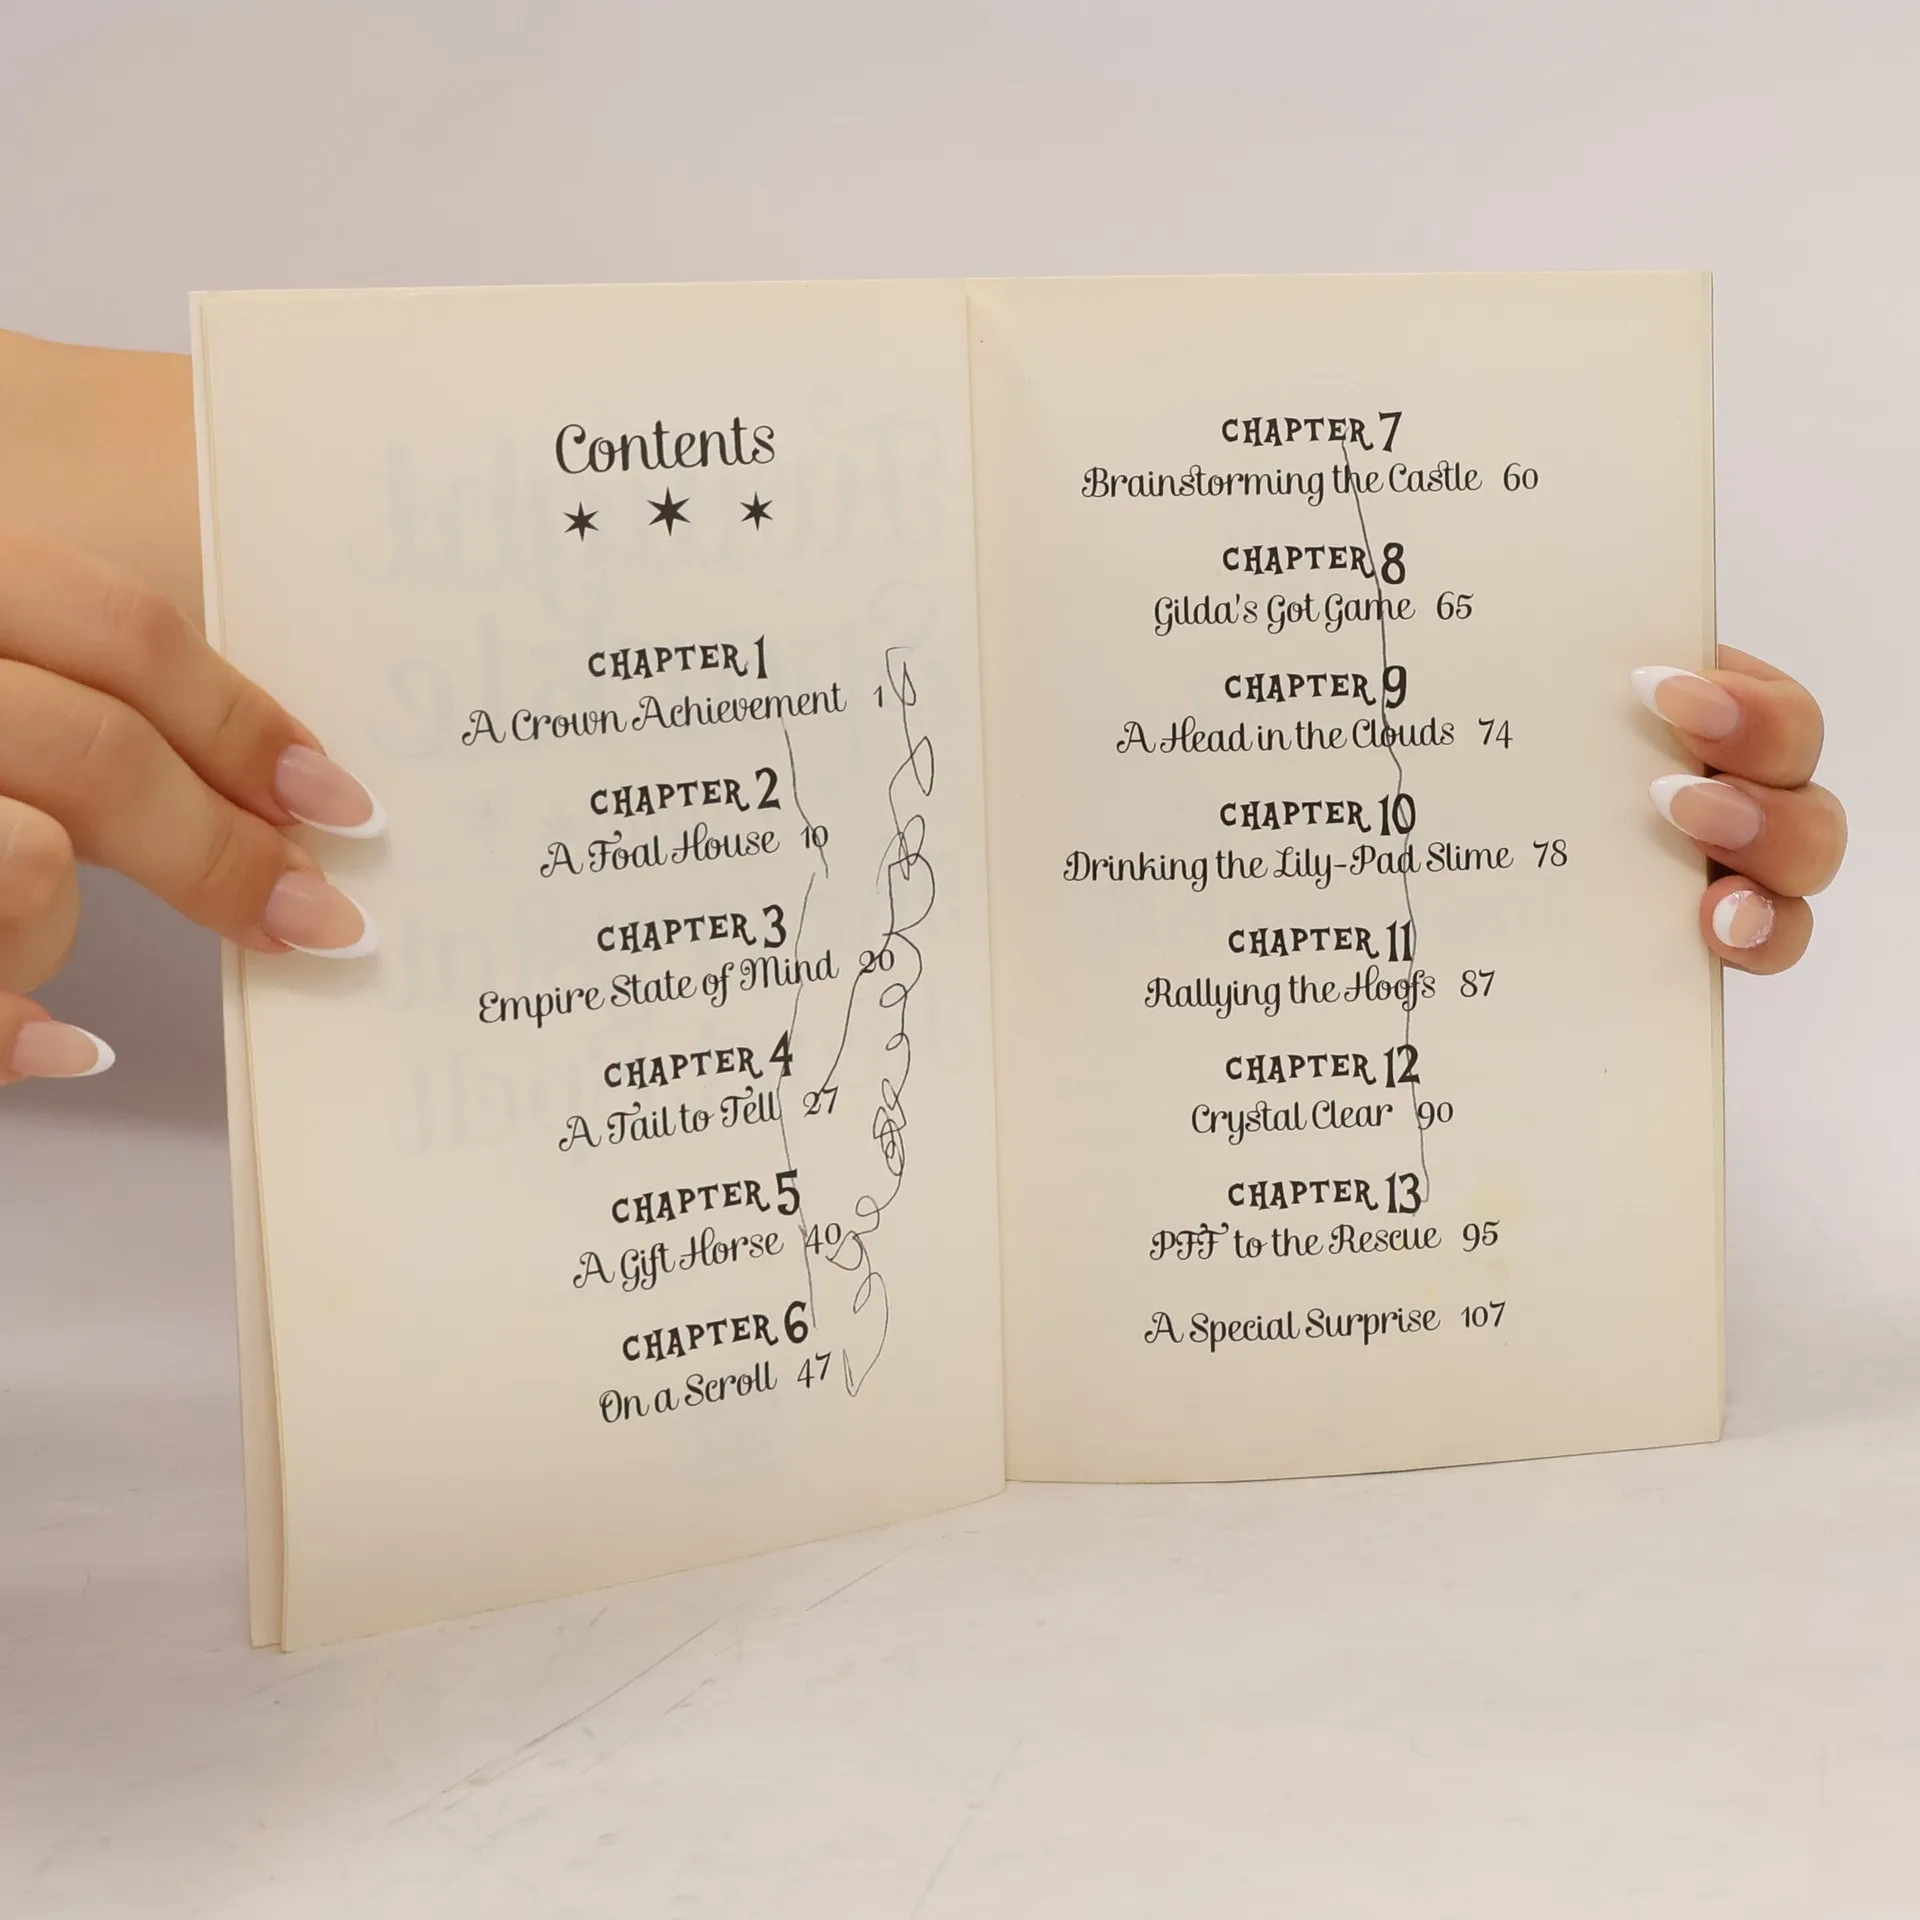 Contents
CHAPTER 1
A Crown Achievement 1
CHAPTER 2
A Foal House 10
CHAPTER 3
Empire State of Mind 20
CHAPTER 4
A Tail to Tell 27
CHAPTER 5
A Gift Horse 40
CHAPTER 6
On a Scroll 47
CHAPTER 7
Brainstorming the Castle 60
CHAPTER 8
Gilda's Got Game 65
CHAPTER 9
A Head in the Clouds 74
CHAPTER 10
Drinking the Lily-Pad Slime 78
CHAPTER 11
Rallying the Hoofs 87
CHAPTER 12
Crystal Clear 90
CHAPTER 13
PFF to the Rescue 95
A Special Surprise 107